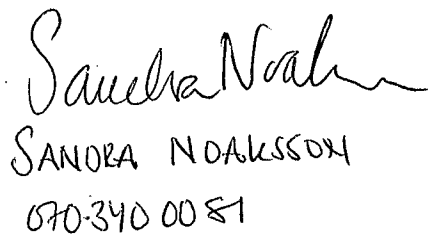 Sandra Noak
SANDRA NOAKSSON
070-340 00 81